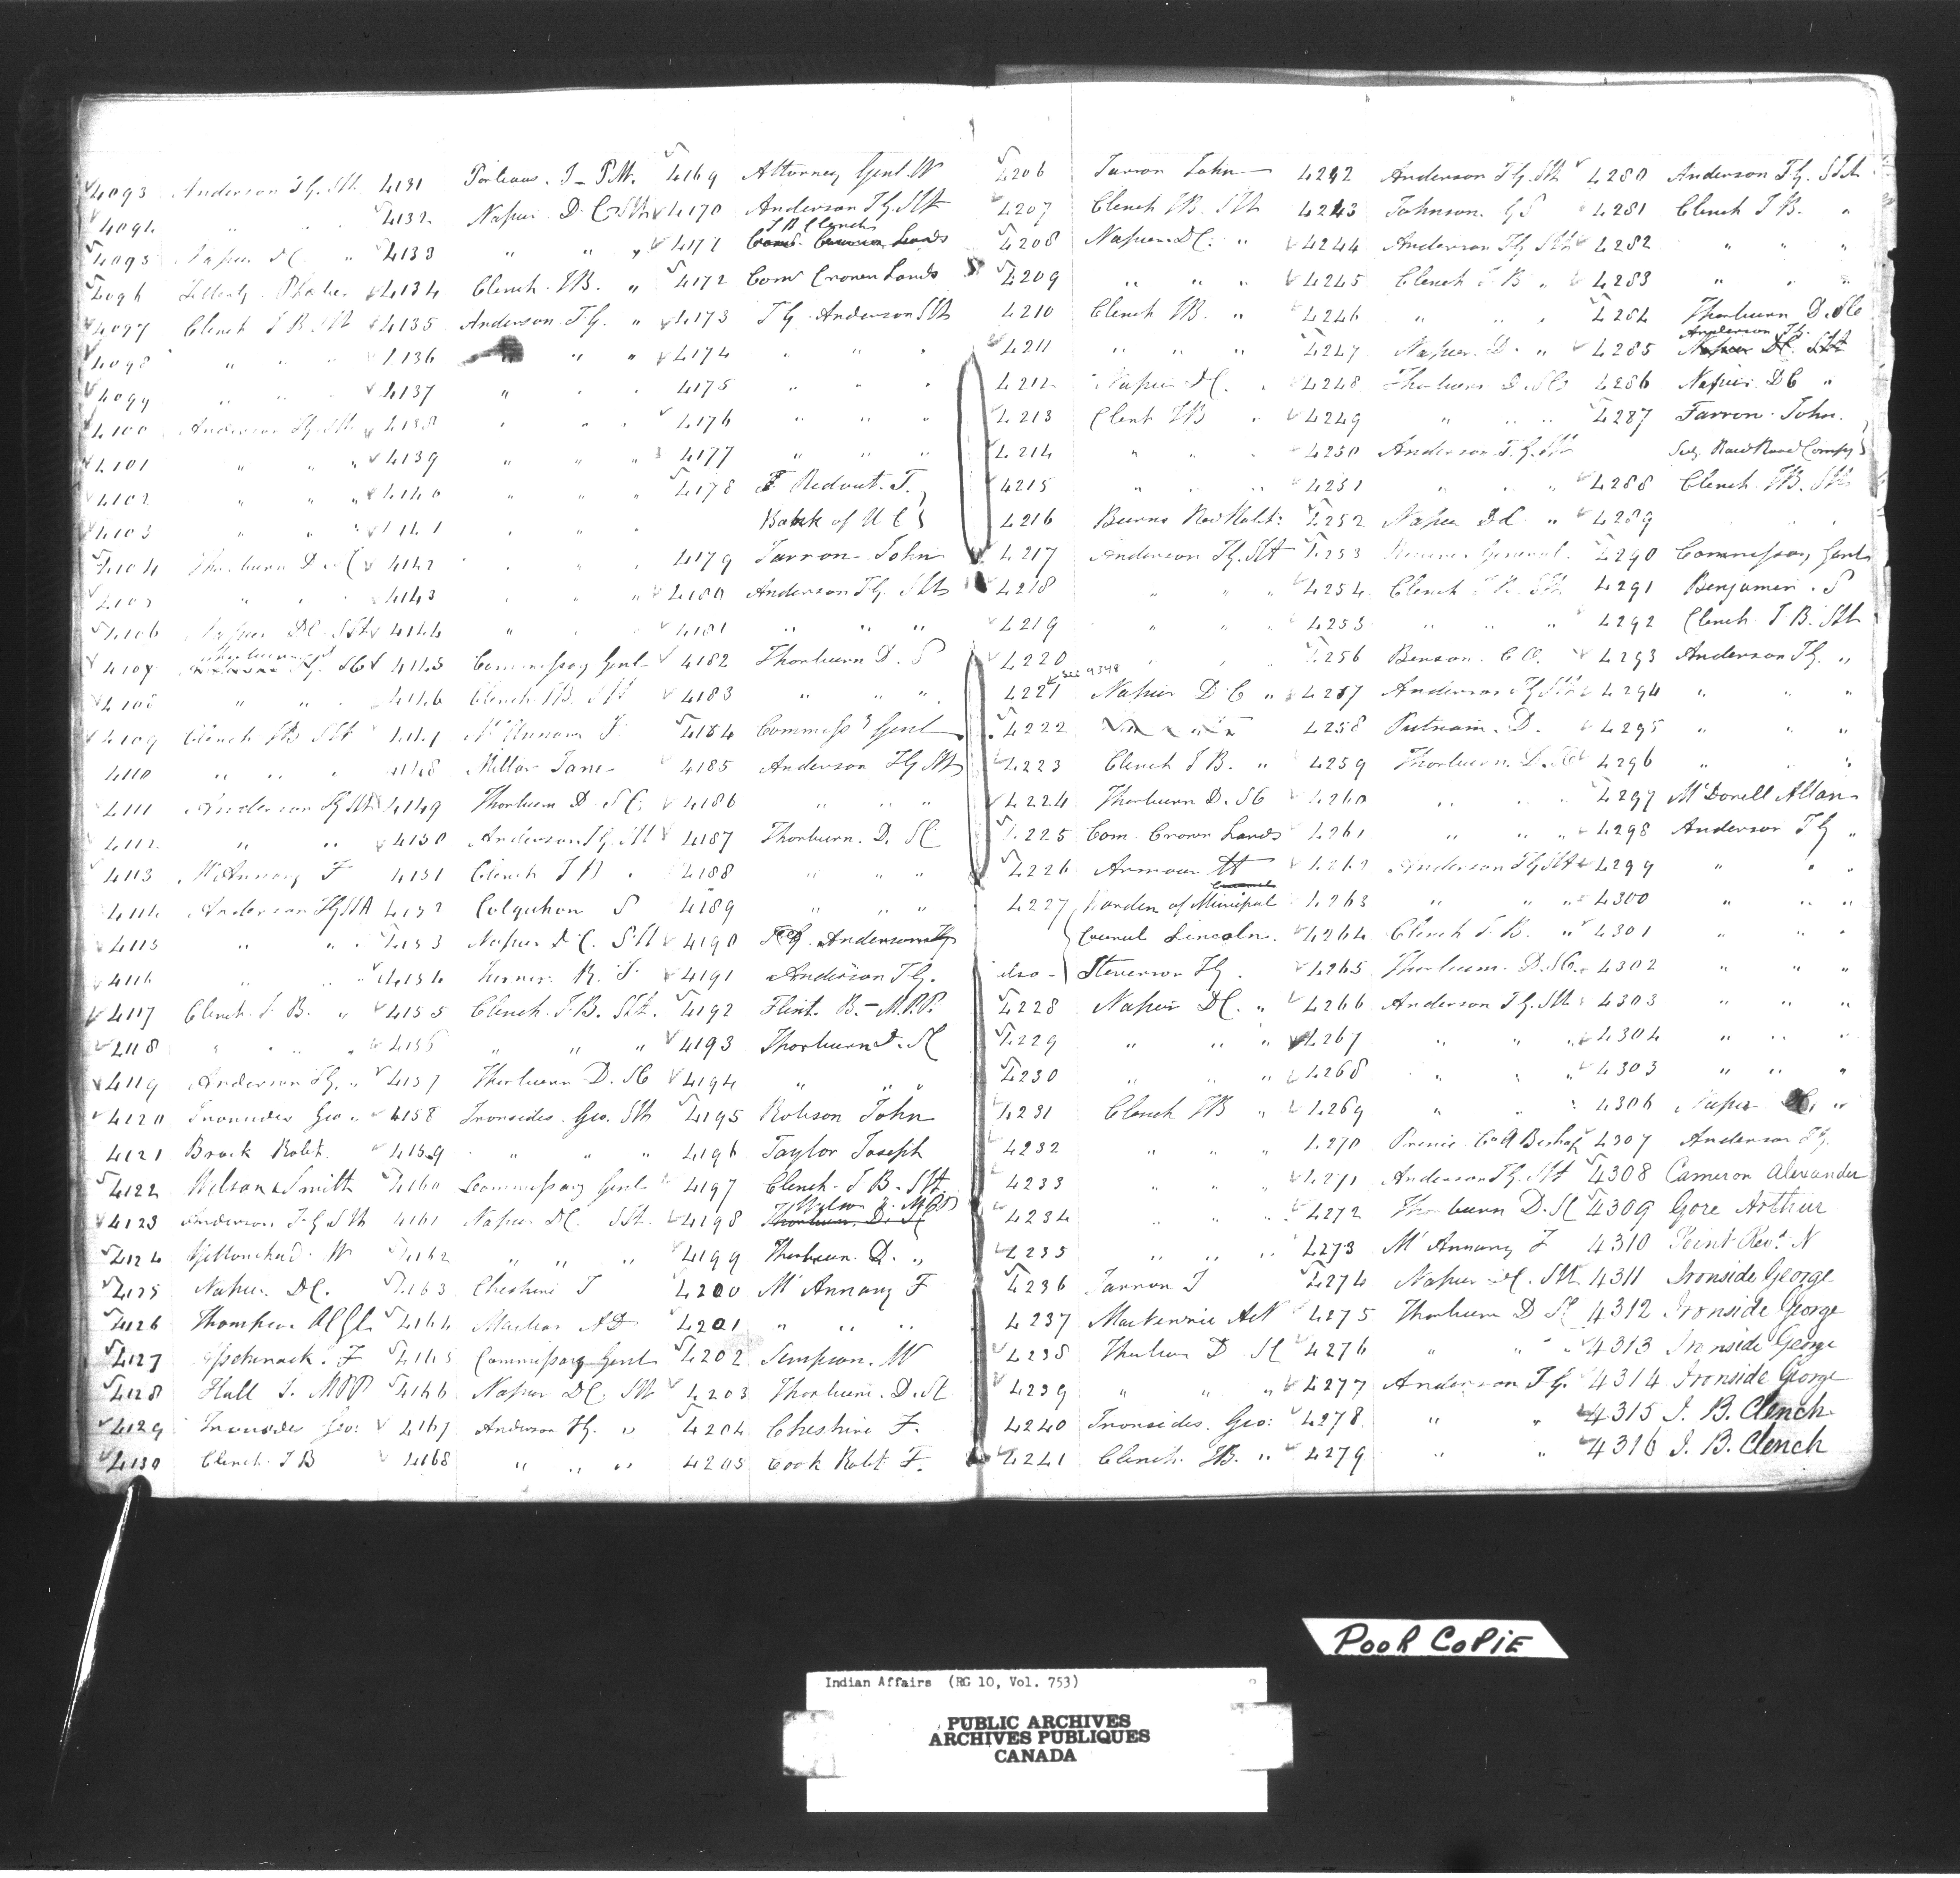 4093 Anderson T.G. SIA
4094 " "
4095 Napier D.C. "
4096
4097 Clench J B. SIA
4098 " " "
4099 " " "
4100 Anderson T.G. SIA
4101 " " "
4102 " " "
4103 " " "
4104 Thorburn D. C
4105 " "
4106 Napier D.C. SIA
4107 Thorburn
4108 " "
4109 Clench J B SIA
4110 " " "
4111 Anderson T G SIA
4112 " "
4113 McAnnany F
4114 Anderson T G SIA
4115 " "
4116 " "
4117 Clench J. B. "
4118 " " " "
4119 Anderson T G. "
4120 Ironsides Geo "
4121 Brock Robt.
4122 Wilson & Smith
4123 Anderson T G SIA
4124 W
4125 Napier D C.
4126 Thompson
4127 F
4128 Hall J. MPP
4129 Ironsides Geo:
4130 Clench J B
4131 J- P.M.
4132 Napier D. C. SIA
4133 " " "
4134 Clench J B. "
4135 Anderson T.G. "
4136 " " "
4137 " " "
4138 " " "
4139 " " "
4140 " "
4141 " "
4142 " "
4143 " " "
4144 " " "
4145 Commissary Genl
4146 Clench J B SIA
4147
4148 Millar Jane
4149 Thorburn D. S C.
4150 Anderson T G. SIA
4151 Clench J B "
4152 Colquhon S
4153 Napier D C. SIA
4154 Turner R. J.
4155 Clench J. B. SIA.
4156 " " "
4157 Thorburn D. S C
4158 Ironsides Geo. SIA
4159 " " "
4160 Commissary Genl
4161 Napier D C. SIA
4162 " " "
4163 Cheshire J
4164
4165 Commissary Genl
4166 Napier D C. SIA
4167 Anderson T G. "
4168 " " "
4169 Attorney Genl W
4170 Anderson T G. SIA
J B Clench
4171 Com. Crown Lands
4172 Com Crown Lands
4173 T G Anderson SIA
4174 " " "
4175 " " "
4176 " " "
4177 " " "
4178 Ridout. T.
Bank of U C
4179 Tarron John
4180 Anderson T G. SIA
4181 " " "
4182 Thorburn D. S
4183 " " "
4184 Commissy Genl
4185 Anderson T G SIA
4186 " " "
4187 Thorburn. D. S C
4188 " " "
4189 " " "
4190 Anderson
4191 Anderson T G.
4192 Flint B. - M.P.P.
4193 Thorburn D. S C
4194 " " "
4195 Robson John
4196 Taylor Joseph
4197 Clench J B. SIA
4198 Thorburn. D. S C
4199 Thorburn D. "
4200 McAnnany F
4201 " " "
4202 Simpson. W
4203 Thorburn. D. S C
4204 Cheshire F.
4205 Cook Robt F.
4206 Tarron John
4207 Clench J B. SIA
4208 Napier D C. "
4209 " " "
4210 Clench J B. "
4211 " " "
4212 Napier D C. "
4213 Clench J B "
4214 " " "
4215 " " "
4216 Burns Rev Robt:
4217 Anderson T G. SIA
4218 " " "
4219 " " "
4220 " "
see 4348
4221 Napier D C "
4222
4223 Clench J B. "
4224 Thorburn D. S C
4225 Com. Crown Lands
4226 Armour
4227 Warden of Municipal
Council Lincoln.
also - Stevenson
4228 Napier D C. "
4229 " " "
4230 " " "
4231 Clench J B "
4232 " " "
4233 " " "
4234 " " "
4235 " " "
4236 Tarron J
4237 Mackenzie
4238 Thorburn D. S C
4239 " " "
4240 Ironsides. Geo:
4241 Clench. J B. "
4242 Anderson T G. SIA
4243 Johnson. G S
4244 Anderson T G SIA
4245 Clench J B "
4246 " " "
4247 Napier. D. "
4248 Thorburn D. S C
4249 " " "
4250 Anderson T. G. SIA
4251 " " "
4252 Napier D C "
4253 Receiver General
4254 Clench J B. SIA
4255 " " "
4256 Benson. C O.
4257 Anderson T G SIA
4258 Putnam. D.
4259 Thorburn. D. S C
4260 " "
4261 " " "
4262 Anderson T G SIA
4263 " " "
4264 Clench J. B. "
4265 Thorburn. D. S C.
4266 Anderson T G. SIA
4267 " " "
4268 " " "
4269 " " "
4270
4271 Anderson T G. SIA
4272 Thorburn D. S C
4273 McAnnany F
4274 Napier D C. SIA
4275 Thorburn D S C
4276 " " "
4277 Anderson T G.
4278 " "
4279 " "
4280 Anderson T G. SIA
4281 Clench J B. "
4282 " " "
4283 " " "
4284 Thorburn D. S C
Anderson T G.
4285 Napier D C. SIA
4286 Napier. D C "
4287 Farron. John.
Secy. Rail Road Compy
4288 Clench. J B. SIA
4289 " "
4290 Commissary Genl
4291 Benjamin. S
4292 Clench J B. SIA
4293 Anderson T G. "
4294 " " "
4295 " " "
4296 " " "
4297 McDonell Allan
4298 Anderson T G "
4299 " " "
4300 " " "
4301 " " "
4302 " " "
4303 " " "
4304 " " "
4305 " " "
4306 Napier "
4307 Anderson T G.
4308 Cameron Alexander
4309 Gore Arthur
4310 Point Revd. N
4311 Ironside George
4312 Ironside George
4313 Ironside George
4314 Ironside George
4315 J. B. Clench
4316 J. B. Clench
POOR COPIE
Indian Affairs (RG 10, Vol. 753)
PUBLIC ARCHIVES
ARCHIVES PUBLIQUES
CANADA